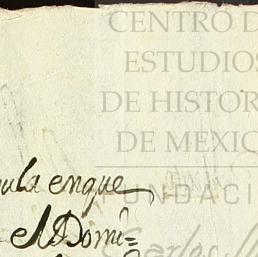 CENTRO D
ESTUDIOS
DE HISTOR
DE MEXIC
FUNDACI
ula enque
el Domi=
Carlos